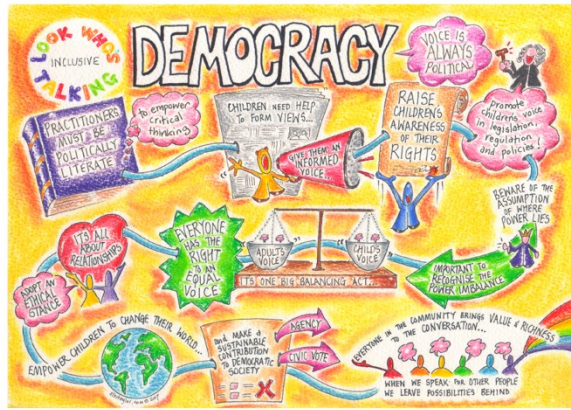 LOOK WHO'S
TALKING
INCLUSIVE
DEMOCRACY
VOICE IS
ALWAYS
POLITICAL
PRACTITIONERS
MUST BE
POLITICALLY
LITERATE
to empower
critical
thinking
CHILDREN NEED HELP
TO FORM VIEWS...
GIVE THEM AN
INFORMED
VOICE.
RAISE
CHILDREN'S
AWARENESS
OF THEIR
RIGHTS
promote
children's voice
in legislation,
regulation
and policies!
BEWARE OF THE
ASSUMPTION
OF WHERE
POWER LIES
IMPORTANT TO
RECOGNISE THE
POWER IMBALANCE
ADULT'S
VOICE
CHILD'S
VOICE
IT'S ONE BIG BALANCING ACT...
EVERYONE
HAS THE
RIGHT
TO AN
EQUAL
VOICE
IT'S ALL
ABOUT
RELATIONSHIPS
ADOPT AN
ETHICAL
STANCE
EMPOWER CHILDREN TO CHANGE THEIR WORLD...
and MAKE A
SUSTAINABLE
CONTRIBUTION
TO DEMOCRATIC
SOCIETY
AGENCY
CIVIC VOTE
EVERYONE IN THE COMMUNITY BRINGS VALUE & RICHNESS
TO THE CONVERSATION...
WHEN WE SPEAK FOR OTHER PEOPLE
WE LEAVE POSSIBILITIES BEHIND